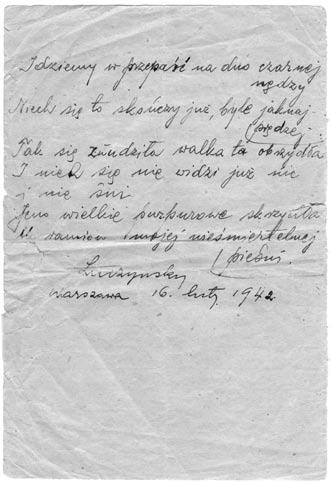 Idziemy w przepaść na dno czarnej
nędzy
Niech się to skończy już byle jaknaj-
(prędzej
Tak się znudziła walka ta obrzydła
I niech się nie widzi już nic
i nic śni
Jeno wielkie purpurowe skrzydła
U ramion mojej nieśmiertelnej
(pieśni.
Warszawa 16. luty 1942